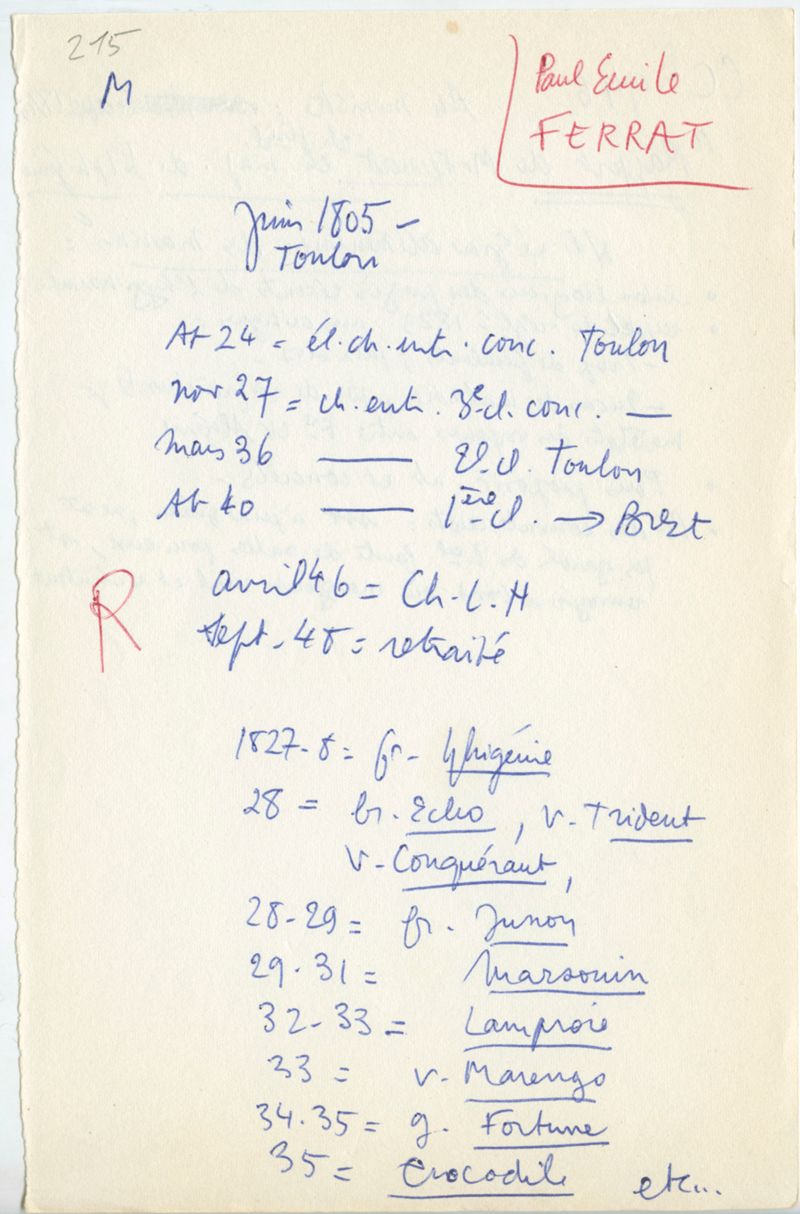 215
M
Paul Emile
FERRAT
Juin 1805 -
Toulon
At 24 = él. ch. entr. conc. Toulon
nov 27 = ch. entr. 3e cl. conc. —
mars 36 — 2e cl. Toulon
At 40 — 1ère cl. → Brest
avril 46 = Ch. L. H
R
Sept. 48 = retraité
1827-8 = fr - Iphigénie
28 = br. Echo, v - Trident
v - Conquérant,
28-29 = fr. Junon
29.31 = Marsouin
32-33 = Lamproie
33 = v. Marengo
34.35 = g. Fortune
35 = Crocodile etc...